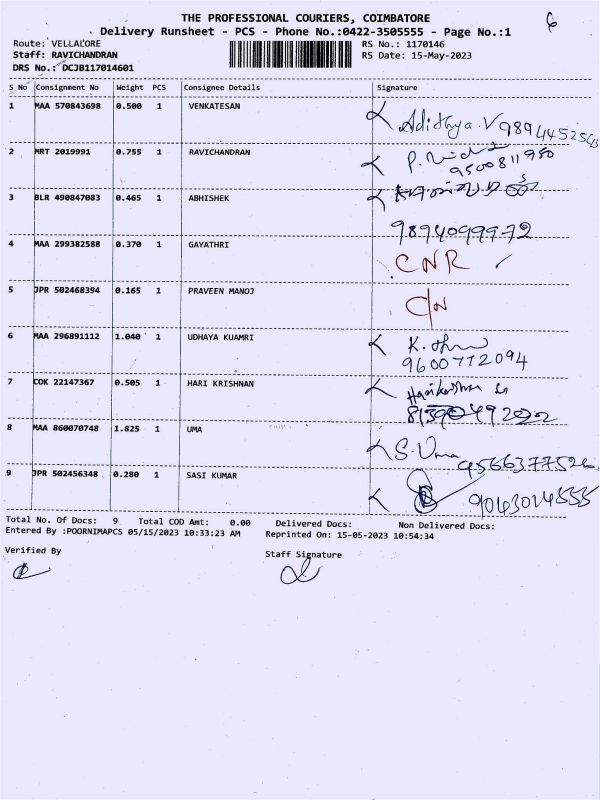 THE PROFESSIONAL COURIERS, COIMBATORE
6
Delivery Runsheet - PCS - Phone No.:0422-3505555 - Page No.:1
Route: VELLALORE RS No.: 1170146
Staff: RAVICHANDRAN RS Date: 15-May-2023
DRS No.: DCJB117014601
S No Consignment No Weight PCS Consignee Details Signature
1 MAA 570843698 0.500 1 VENKATESAN Adithya.V
2 MRT 2019991 0.755 1 RAVICHANDRAN 9500811950
3 BLR 490847083 0.465 1 ABHISHEK
9894099972
4 MAA 299382588 0.370 1 GAYATHRI CNR
5 JPR 502468394 0.165 1 PRAVEEN MANOJ C/N
6 MAA 296891112 1.040 1 UDHAYA KUAMRI K.
9600772094
7 COK 22147367 0.505 1 HARI KRISHNAN Harikrishnan
8 MAA 860070748 1.825 1 UMA S. Uma 9566377526
9 JPR 502456348 0.280 1 SASI KUMAR 9043024555
Total No. Of Docs: 9 Total COD Amt: 0.00 Delivered Docs: Non Delivered Docs:
Entered By :POORNIMAPCS 05/15/2023 10:33:23 AM Reprinted On: 15-05-2023 10:54:34
Verified By Staff Signature